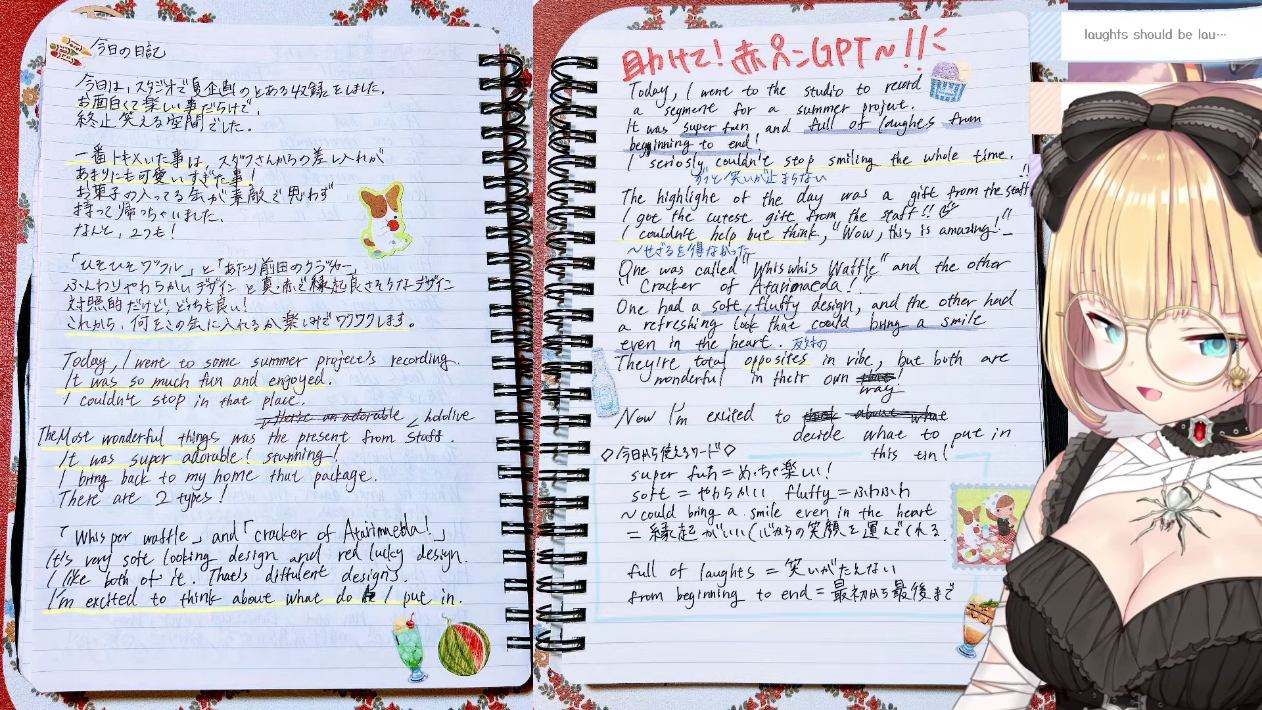 今日の日記
今日は、スタジオで夏企画のとある収録をしました。
お面白くて楽しい事だらけで、
終止笑える空間でした。
一番トキメいた事は、スタッフさんからの差し入れが
あまりにも可愛いすぎた事!
お菓子の入ってる缶が素敵で思わず
持って帰っちゃいました。
なんと、2つも!
「ひそひそワッフル」と「あたり前田のクラッカー」
ふんわりやわらかいデザインと真っ赤で縁起良さそうなデザイン
対照的だけど、どちらも良い!
これから、何をこの缶に入れるか楽しみでワクワクします。
Today, I went to some summer project's recording.
It was so much fun and enjoyed.
I couldn't stop in that place.
hololive
The Most wonderful things was the present from staff.
It was super adorable! stunning!
I bring back to my home that package.
There are 2 types!
「Whisper waffle」 and 「cracker of Atarimaeda!」
It's very soft looking design and red lucky design.
I like both of it. That's diffulent designs.
I'm excited to think about what do I put in.
助けて!赤ペンGPT〜!!
Today, I went to the studio to record
a segment for a summer project.
It was super fun, and full of laughes from
beginning to end!
I seriosly couldn't stop smiling the whole time.
ずっと笑いが止まらない
The highlight of the day was a gift from the staff
I got the cutest gift from the staff!!
I couldn't help but think, "Wow, this is amazing!"
〜せざるを得なかった
One was called "Whiswhis Waffle" and the other
"Cracker of Atarimaeda!"
One had a soft, fluffy design, and the other had
a refreshing look that could bring a smile
even in the heart. 反対の
They're total opposites in vibe, but both are
wonderful in their own way!
Now I'm excited to
decide what to put in
this tin!
◇今日から使えるワード◇
super fun = めっちゃ楽しい!
soft = やわらかい fluffy = ふわふわ
〜could bring a smile even in the heart
= 縁起がいい(心からの笑顔を運んでくれる.
full of laughts = 笑いがたえない
from beginning to end = 最初から最後まで
laughts should be lau…